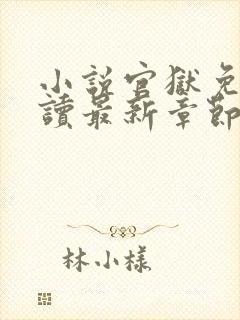 小說官獄免
讀最新章節
林小樣